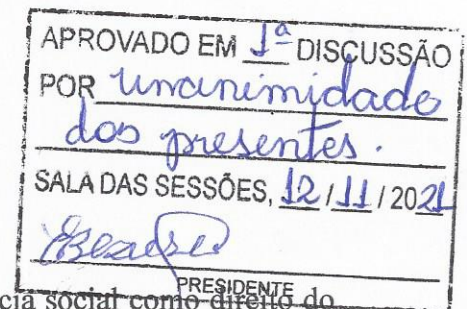 APROVADO EM 1ª DISCUSSÃO
POR unanimidade
dos presentes.
SALA DAS SESSÕES, 12 / 11 / 2021
PRESIDENTE
cia social como direito do